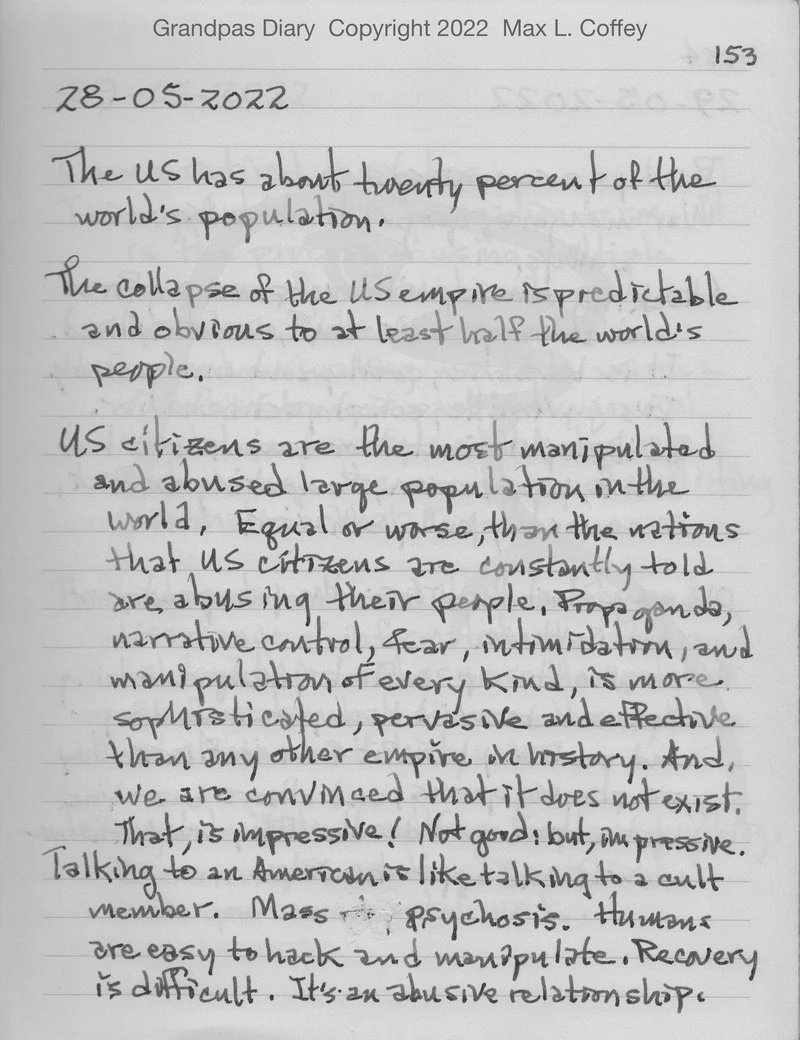 Grandpas Diary Copyright 2022 Max L. Coffey
153
28-05-2022
The US has about twenty percent of the
world's population.
The collapse of the US empire is predictable
and obvious to at least half the world's
people.
US citizens are the most manipulated
and abused large population in the
world. Equal or worse, than the nations
that US citizens are constantly told
are abusing their people. Propaganda,
narrative control, fear, intimidation, and
manipulation of every kind, is more
sophisticated, pervasive and effective
than any other empire in history. And,
we are convinced that it does not exist.
That, is impressive! Not good: but, impressive.
Talking to an American is like talking to a cult
member. Mass psychosis. Humans
are easy to hack and manipulate. Recovery
is difficult. It's an abusive relationship.